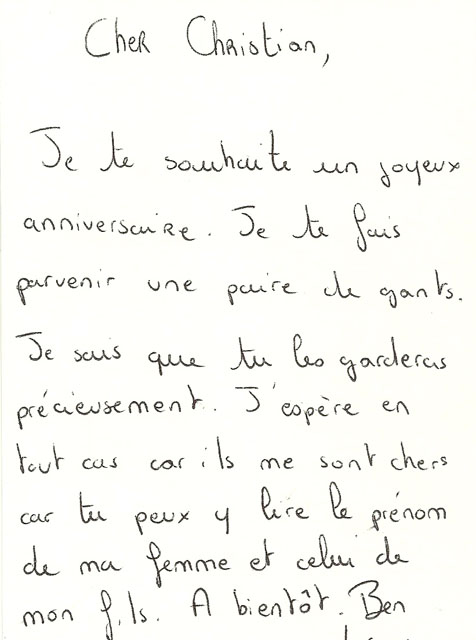 Cher Christian,
Je te souhaite un joyeux
anniversaire. Je te fais
parvenir une paire de gants.
Je sais que tu les garderas
précieusement. J'espère en
tout cas car ils me sont chers
car tu peux y lire le prénom
de ma femme et celui de
mon fils. A bientôt. Ben